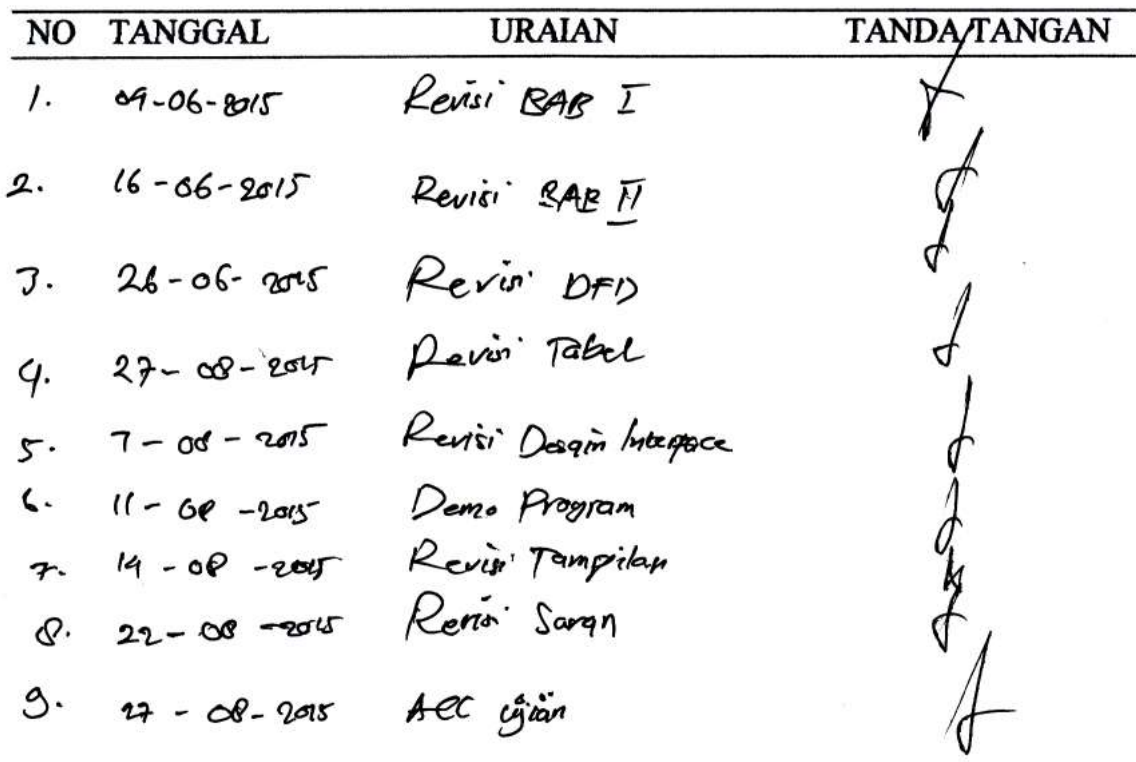 NO TANGGAL URAIAN TANDA TANGAN
1. 09-06-2015 Revisi BAB I
2. 16-06-2015 Revisi BAB II
3. 26-06-2015 Revisi DFD
4. 27-08-2015 Revisi Tabel
5. 7-08-2015 Revisi Desain Interface
6. 11-08-2015 Demo Program
7. 14-08-2015 Revisi Tampilan
8. 22-08-2015 Revisi Saran
9. 27-08-2015 ACC Ujian